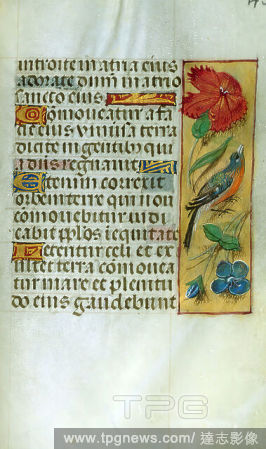 introite in atria eius
adorate dum in atrio
sancto eius
Comoueatur a fa
cie eius uniusa terra
dicite in gentib; qui
a dus regnauit
Etenim correxit
orbem terre qui non
comouebitur iudi
cabit pplos i equitate
Letentur celi et ex
ultet terra comouea
tur mare et plenitu
do eius gaudebunt
TPG
www.tpgnews.com/達志影像